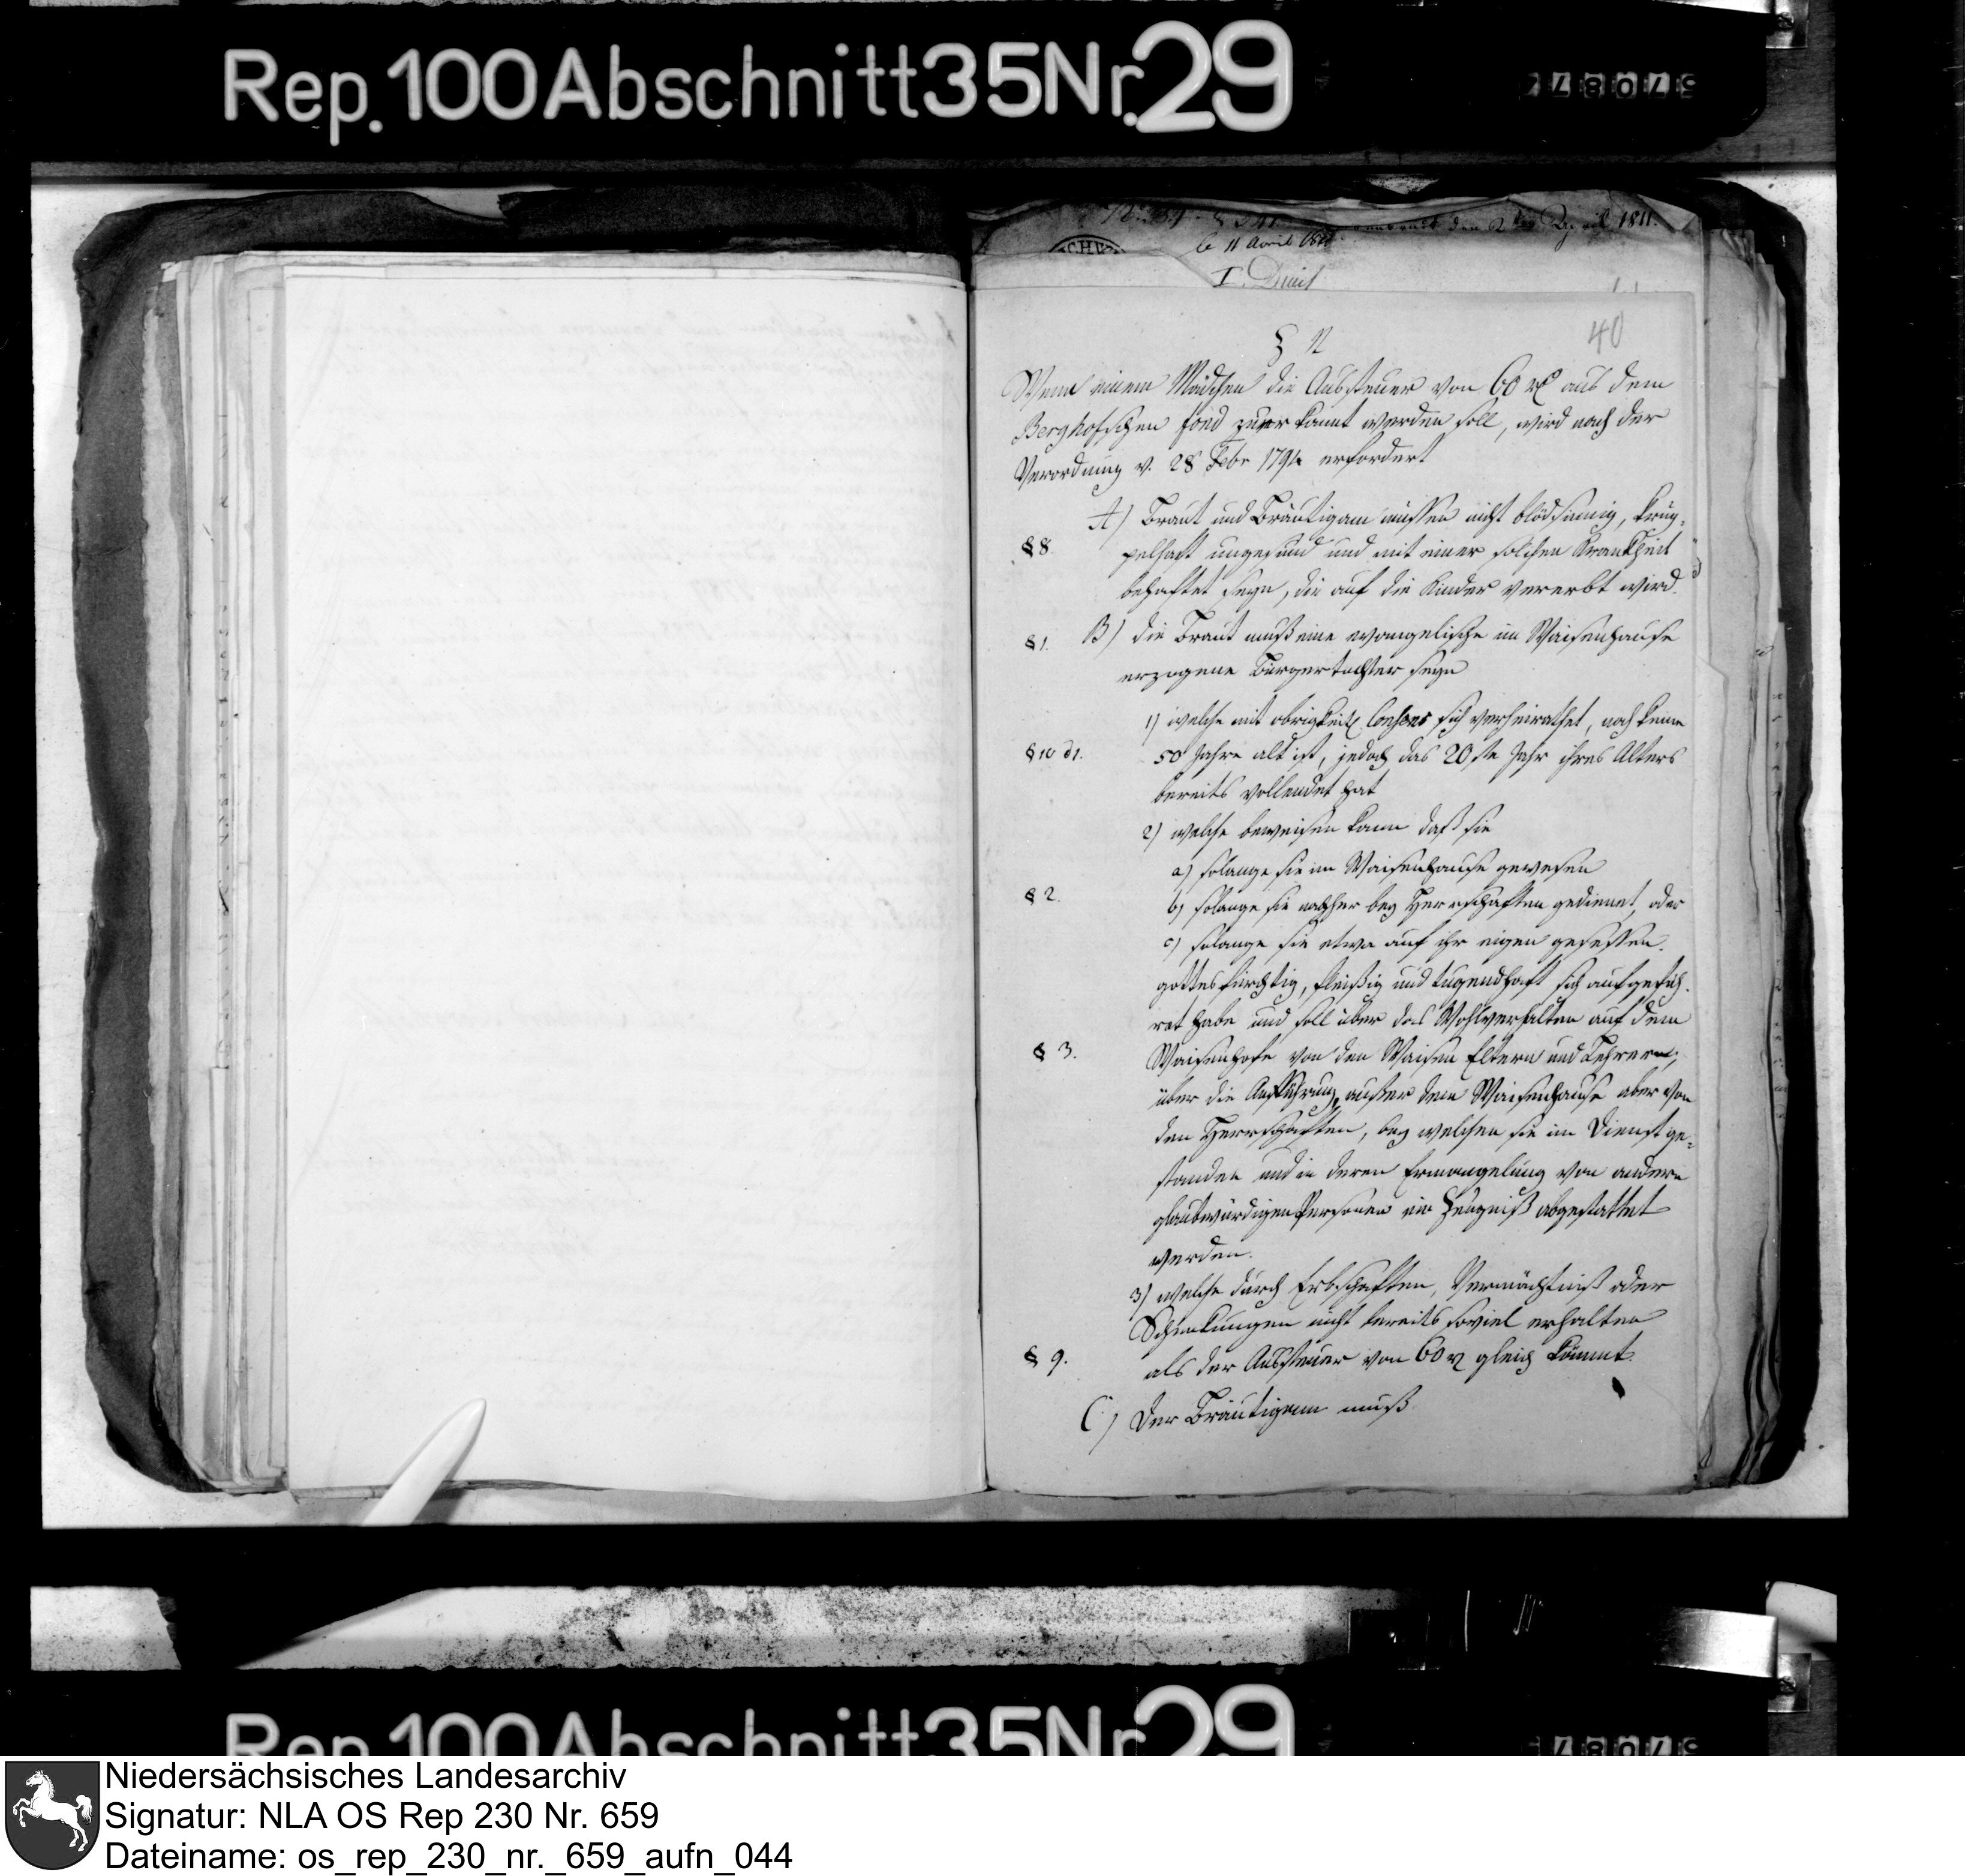 Rep. 100 Abschnitt 35 Nr. 29
57087
den 2ten April 1811.
le 11 Avril
I.
40
§
Wenn einem Mädchen die Aussteuer von 60 rt aus dem
Berghofschen fond zuerkannt werden soll, wird nach der
Verordnung v. 28 Febr 1794 erfordert
A) Braut und Bräutigam müssen nicht blödsinnig, krüp-
§ 8.
pelhaft ungesund und mit einer solchen Krankheit
behaftet seyn, die auf die Kinder vererbt wird.
§ 1.
B) die Braut muß eine evangelische im Waisenhause
erzogene Bürgertochter seyn
1) welche mit obrigkeitl Consens sich verheirathet, noch keine
§ 10
50 Jahre alt ist, jedoch das 20ste Jahr ihres Alters
bereits vollendet hat
2) welche beweisen kann daß sie
a) solange sie im Waisenhause gewesen
§ 2.
b) solange sie nachher bey Herrschaften gedienet, oder
c) solange sie etwa auf ihr eigen gesessen.
gottesfürchtig, fleißig und tugendhaft sich aufgefüh-
ret habe und soll über das Wohlverhalten auf dem
§ 3.
Waisenhofe von den Waisen Eltern und Lehrern;
über die Aufführung außer dem Waisenhause aber von
den Herrschaften, bey welchen sie im Dienst ge-
standen und in deren Ermangelung von andern
glaubwürdigen Personen ein Zeugniß abgestattet
werden.
3) welche durch Erbschaften, Vermächtniß oder
Schenkungen nicht bereits soviel erhalten
§ 9.
als der Aussteuer von 60 rt gleich kömmt.
C) der Bräutigam muß
Rep. 100 Abschnitt 35 Nr. 29
57087
Niedersächsisches Landesarchiv
Signatur: NLA OS Rep 230 Nr. 659
Dateiname: os_rep_230_nr._659_aufn_044